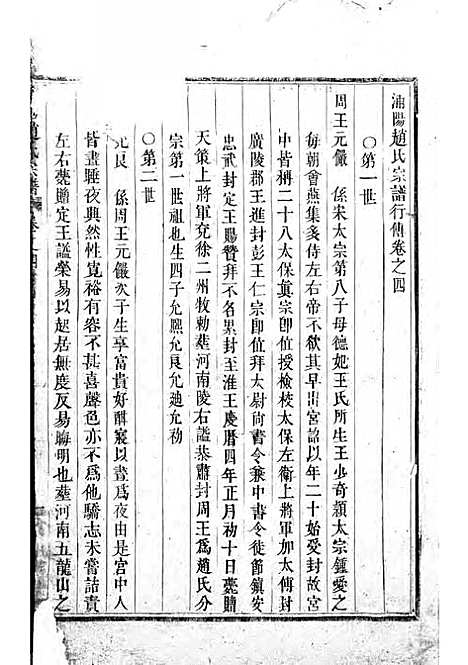 浦陽趙氏宗譜行傳卷之四
○第一世
周王元儼 係宋太宗第八子母德妃王氏所生王少奇頴太宗鍾愛之
每朝會燕集多侍左右帝不欲其早出宮詔以年二十始受封故宮
中皆稱二十八太保眞宗卽位授檢校太保左衛上將軍加太傅封
廣陵郡王進封彭王仁宗卽位拜太尉尚書令兼中書令徙節鎮安
忠武封定王賜贊拜不名累封至淮王慶曆四年正月初十日薨贈
天策上將軍兗徐二州牧勅葬河南陵右謚恭肅封周王爲趙氏分
宗第一世祖也生四子允熈允良允廸允初
○第二世
允良 係周王元儼次子生享富貴好酣寢以晝爲夜由是宮中人
皆晝睡夜興然性寬裕有容不甚喜聲色亦不爲他驕志未嘗詰責
左右薨贈定王謚榮易以起居無度反易晦明也葬河南五龍山之